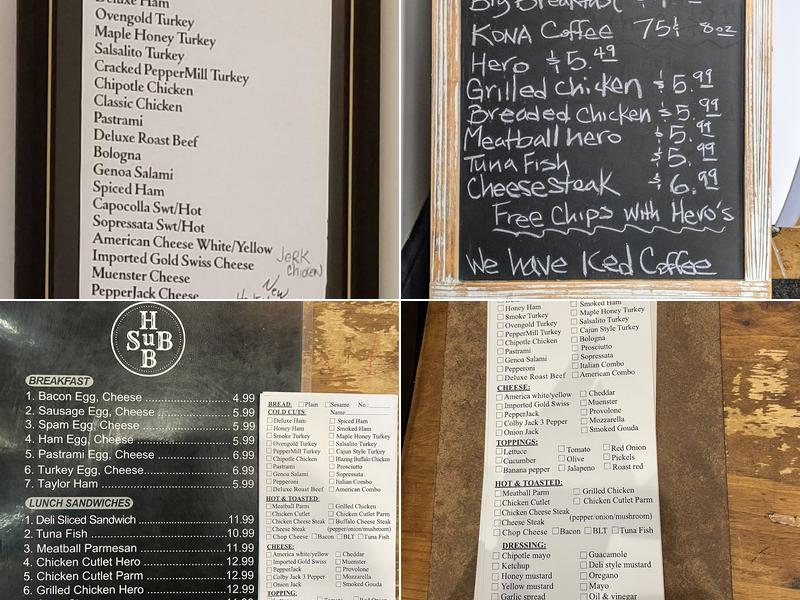 Deluxe Ham
Ovengold Turkey
Maple Honey Turkey
Salsalito Turkey
Cracked PepperMill Turkey
Chipotle Chicken
Classic Chicken
Pastrami
Deluxe Roast Beef
Bologna
Genoa Salami
Spiced Ham
Capocolla Swt/Hot
Sopressata Swt/Hot
American Cheese White/Yellow
Imported Gold Swiss Cheese
Muenster Cheese
PepperJack Cheese
Jerk
Chicken
New
Big Breakfast
KONA Coffee 75¢ 8oz
Hero $5.49
Grilled chicken $5.99
Breaded Chicken $5.99
Meatball hero $5.99
Tuna Fish $5.99
Cheesesteak $6.99
Free Chips with Hero's
We have Iced Coffee
H
SuB
B
BREAKFAST
1. Bacon Egg, Cheese 4.99
2. Sausage Egg, Cheese 5.99
3. Spam Egg, Cheese 5.99
4. Ham Egg, Cheese 5.99
5. Pastrami Egg, Cheese 6.99
6. Turkey Egg, Cheese 6.99
7. Taylor Ham 5.99
LUNCH SANDWICHES
1. Deli Sliced Sandwich 11.99
2. Tuna Fish 10.99
3. Meatball Parmesan 11.99
4. Chicken Cutlet Hero 12.99
5. Chicken Cutlet Parm 12.99
6. Grilled Chicken Hero 12.99
BREAD: Plain Sesame No:
COLD CUTS Name
Deluxe Ham Spiced Ham
Honey Ham Smoked Ham
Smoke Turkey Maple Honey Turkey
Ovengold Turkey Salsalito Turkey
PepperMill Turkey Cajun Style Turkey
Chipotle Chicken Blazing Buffalo Chicken
Pastrami Prosciutto
Genoa Salami Sopressata
Pepperoni Italian Combo
Deluxe Roast Beef American Combo
HOT & TOASTED
Meatball Parm Grilled Chicken
Chicken Cutlet Chicken Cutlet Parm
Chicken Cheese Steak Buffalo Cheese Steak
Cheese Steak (pepper/onion/mushroom)
Chop Cheese Bacon BLT Tuna Fish
CHEESE:
America white/yellow Cheddar
Imported Gold Swiss Muenster
PepperJack Provolone
Colby Jack 3 Pepper Mozzarella
Onion Jack Smoked Gouda
TOPPING:
Honey Ham Smoked Ham
Smoke Turkey Maple Honey Turkey
Ovengold Turkey Salsalito Turkey
PepperMill Turkey Cajun Style Turkey
Chipotle Chicken Bologna
Pastrami Prosciutto
Genoa Salami Sopressata
Pepperoni Italian Combo
Deluxe Roast Beef American Combo
CHEESE:
America white/yellow Cheddar
Imported Gold Swiss Muenster
PepperJack Provolone
Colby Jack 3 Pepper Mozzarella
Onion Jack Smoked Gouda
TOPPINGS:
Lettuce Tomato Red Onion
Cucumber Olive Pickels
Banana pepper Jalapeno Roast red
HOT & TOASTED:
Meatball Parm Grilled Chicken
Chicken Cutlet Chicken Cutlet Parm
Chicken Cheese Steak
Cheese Steak (pepper/onion/mushroom)
Chop Cheese Bacon BLT Tuna Fish
DRESSING:
Chipotle mayo Guacamole
Ketchup Deli style mustard
Honey mustard Oregano
Yellow mustard Mayo
Garlic spread Oil & vinegar